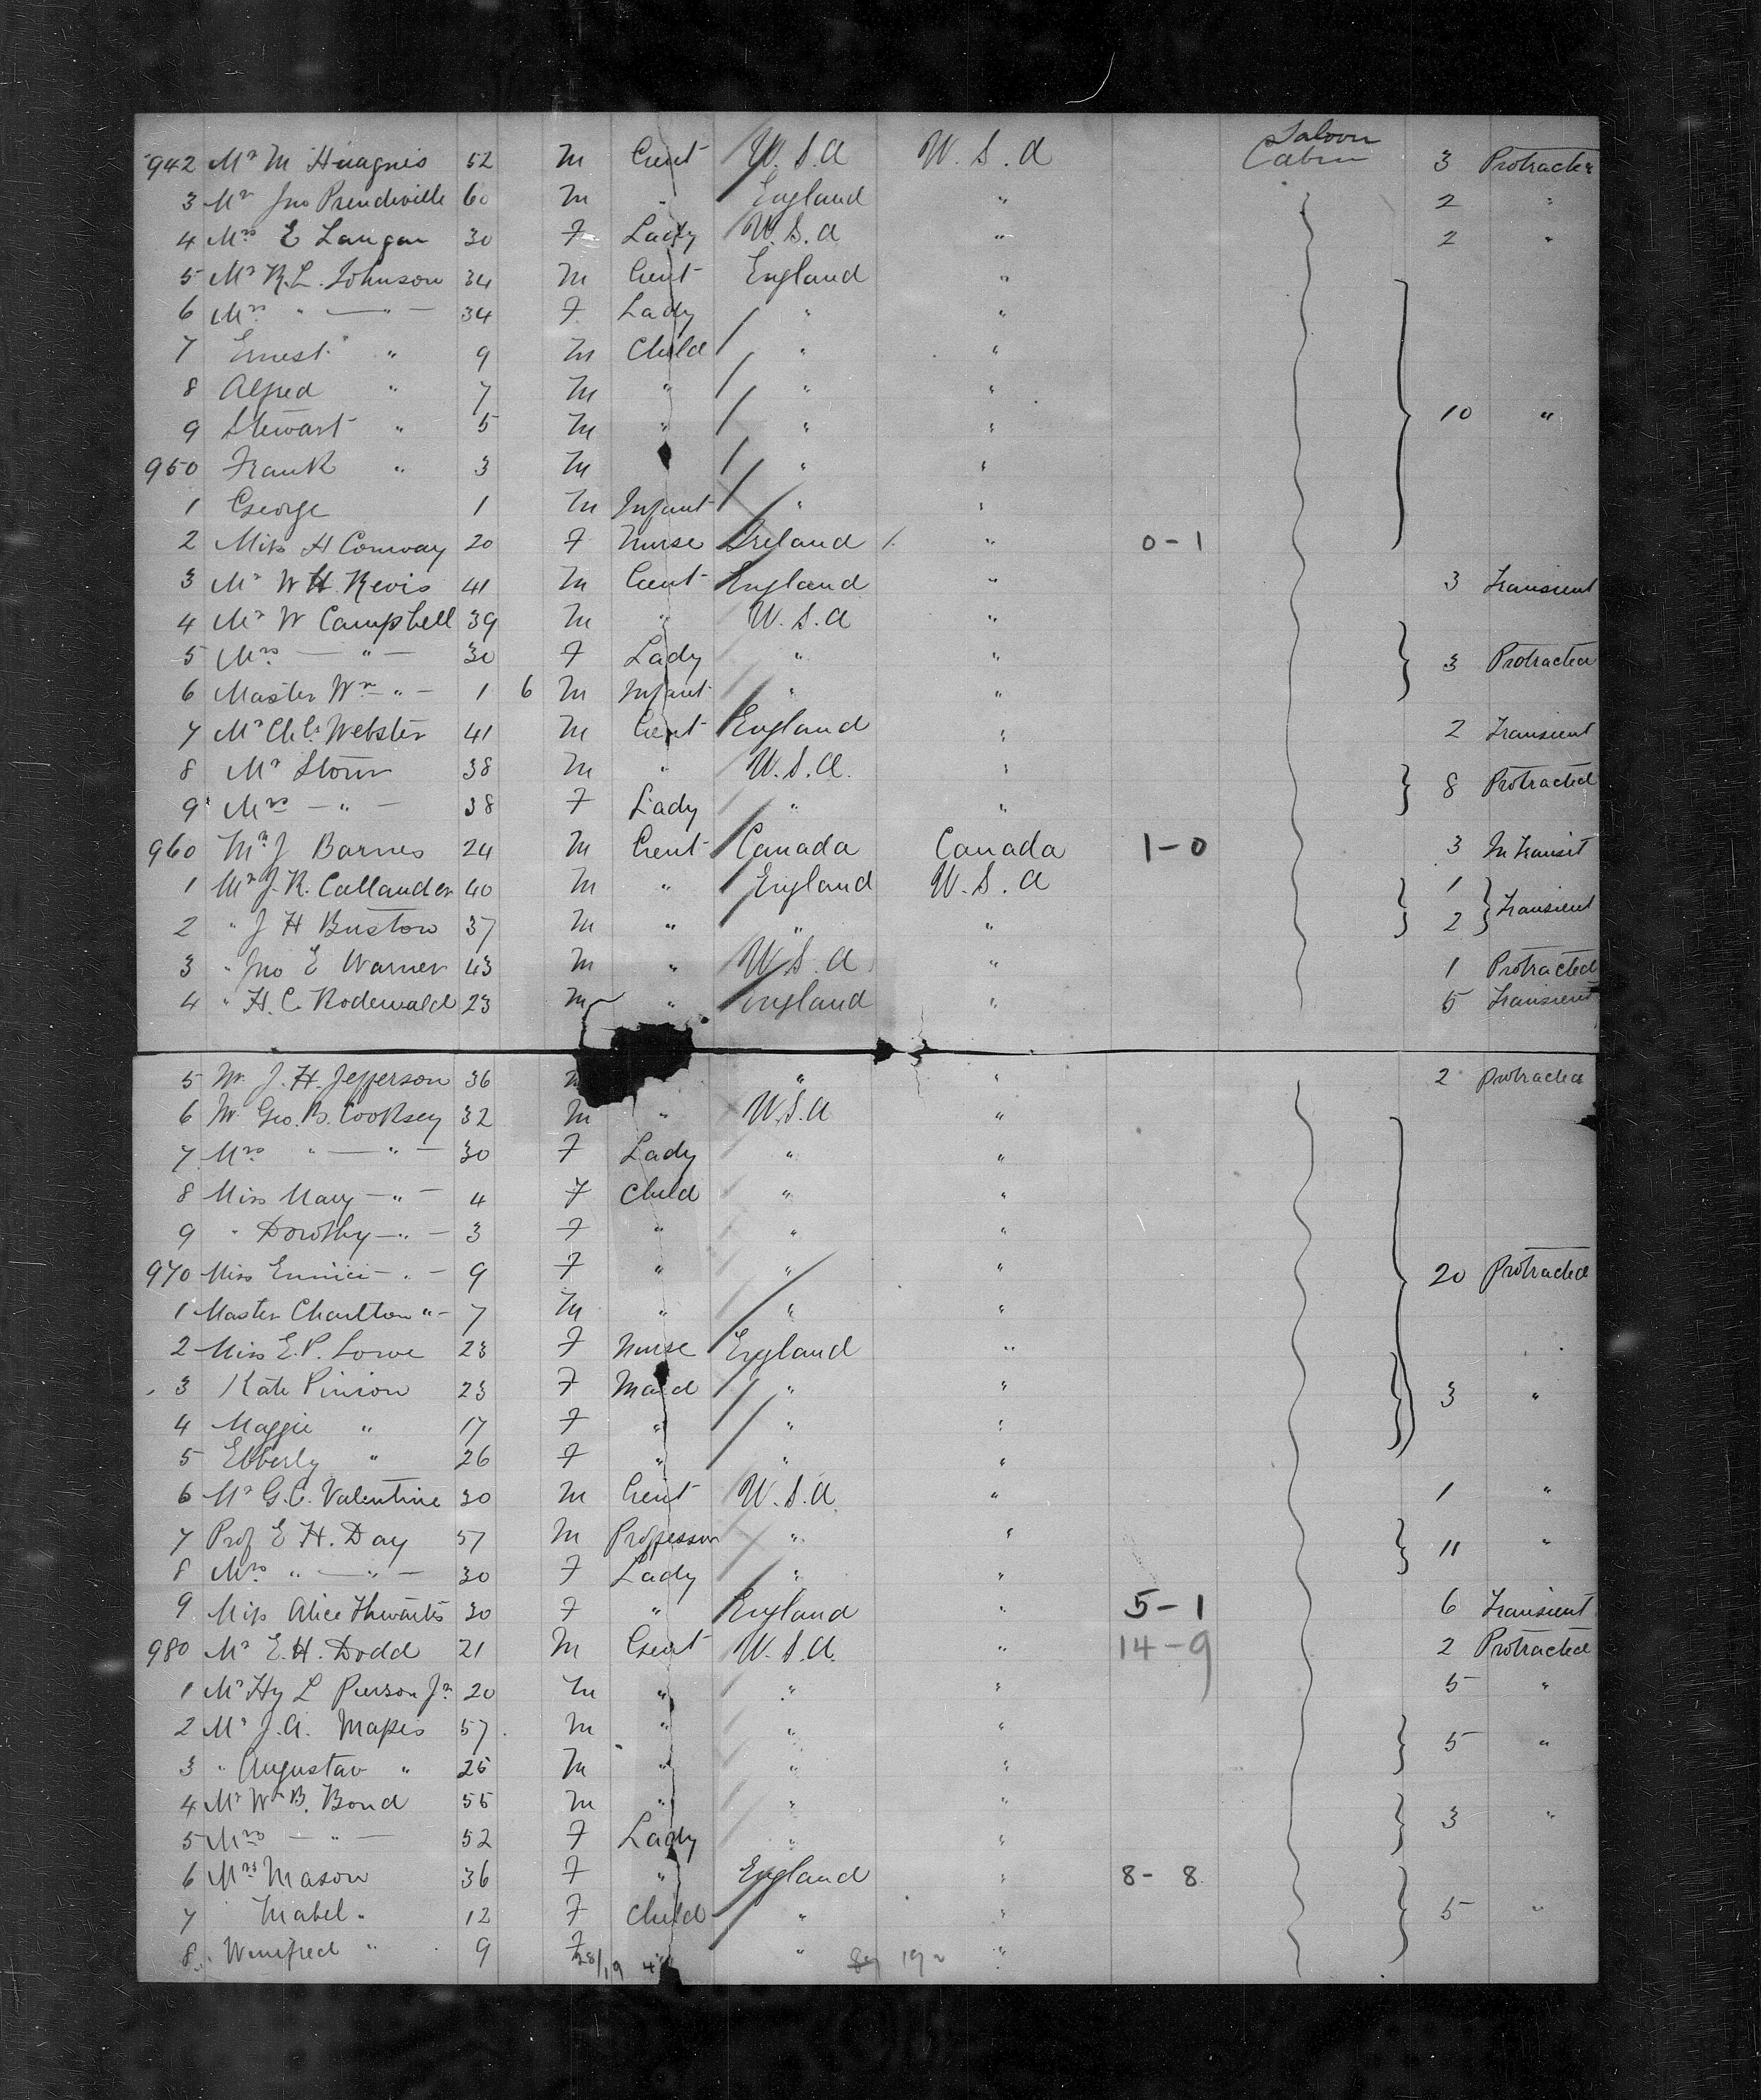 Saloon
942 Mr M Huagnis 52 M Gent U.S.A U.S.A Cabin 3 Protracted
3 Mr Jno Prendiville 60 M " England " 2 "
4 Mrs E Langan 30 F Lady U.S.A " 2 "
5 Mr R.L. Johnson 34 M Gent England "
6 Mrs " — " — 34 F Lady " "
7 Ernest " 9 M Child " "
8 Alfred " 7 M " " "
9 Stewart " 5 M " " " 10 "
950 Frank " 3 M " "
1 George 1 M Infant " "
2 Miss H Conway 20 F Nurse Ireland / " 0-1
3 Mr W H. Revis 41 M Gent England " 3 Transient
4 Mr W Campbell 39 M " U.S.A "
5 Mrs — " — 30 F Lady " " 3 Protracted
6 Master Wm " — 1 6 M Infant " "
7 Mr Ch. Webster 41 M Gent England " 2 Transient
8 Mr Storm 38 M " U.S.A. "
9 Mrs — " — 38 F Lady " " 8 Protracted
960 Mr J Barnes 24 M Gent Canada Canada 1-0 3 In Transit
1 Mr J. R. Callander 40 M " England U.S.A 1
2 " J H Bustow 37 M " " " 2 Transient
3 " Jno E Warner 43 M " U.S.A " 1 Protracted
4 " H. C. Rodewald 23 M " England " 5 Transient
5 Mr. J. H. Jefferson 36 " " 2 Protracted
6 Mr. Geo. B. Cooksey 32 M " U.S.A "
7 Mrs " — " — 30 F Lady " "
8 Miss Mary — " — 4 F Child " "
9 " Dorothy — " — 3 F " " "
970 Miss Eunice — " — 9 F " " " 20 Protracted
1 Master Charlton " — 7 M " " "
2 Miss E.P. Lowe 23 F Nurse England "
3 Kate Pinion 23 F Maid " " 3 "
4 Maggie " 17 F " " "
5 Ebberly " 26 F " " "
6 Mr G.C. Valentine 30 M Gent U.S.A. " 1 "
7 Prof E H. Day 57 M Professor " "
8 Mrs " — " — 30 F Lady " " 11 "
9 Miss Alice Thwaits 30 F " England " 5-1 6 Transient
980 Mr E.H. Dodd 21 M Gent U.S.A. " 14-9 2 Protracted
1 Mr Hy L Pierson Jr 20 M " " " 5 "
2 Mr J.A. Mapes 57 M " " "
3 " Augustav " 25 M " " " 5 "
4 Mr Wm B. Bond 55 M " " "
5 Mrs — " — 52 F Lady " " 3 "
6 Mrs Mason 36 F " England " 8-8
7 Mabel " 12 F Child " " 5 "
8 Winifred " 9 F " "
28/19